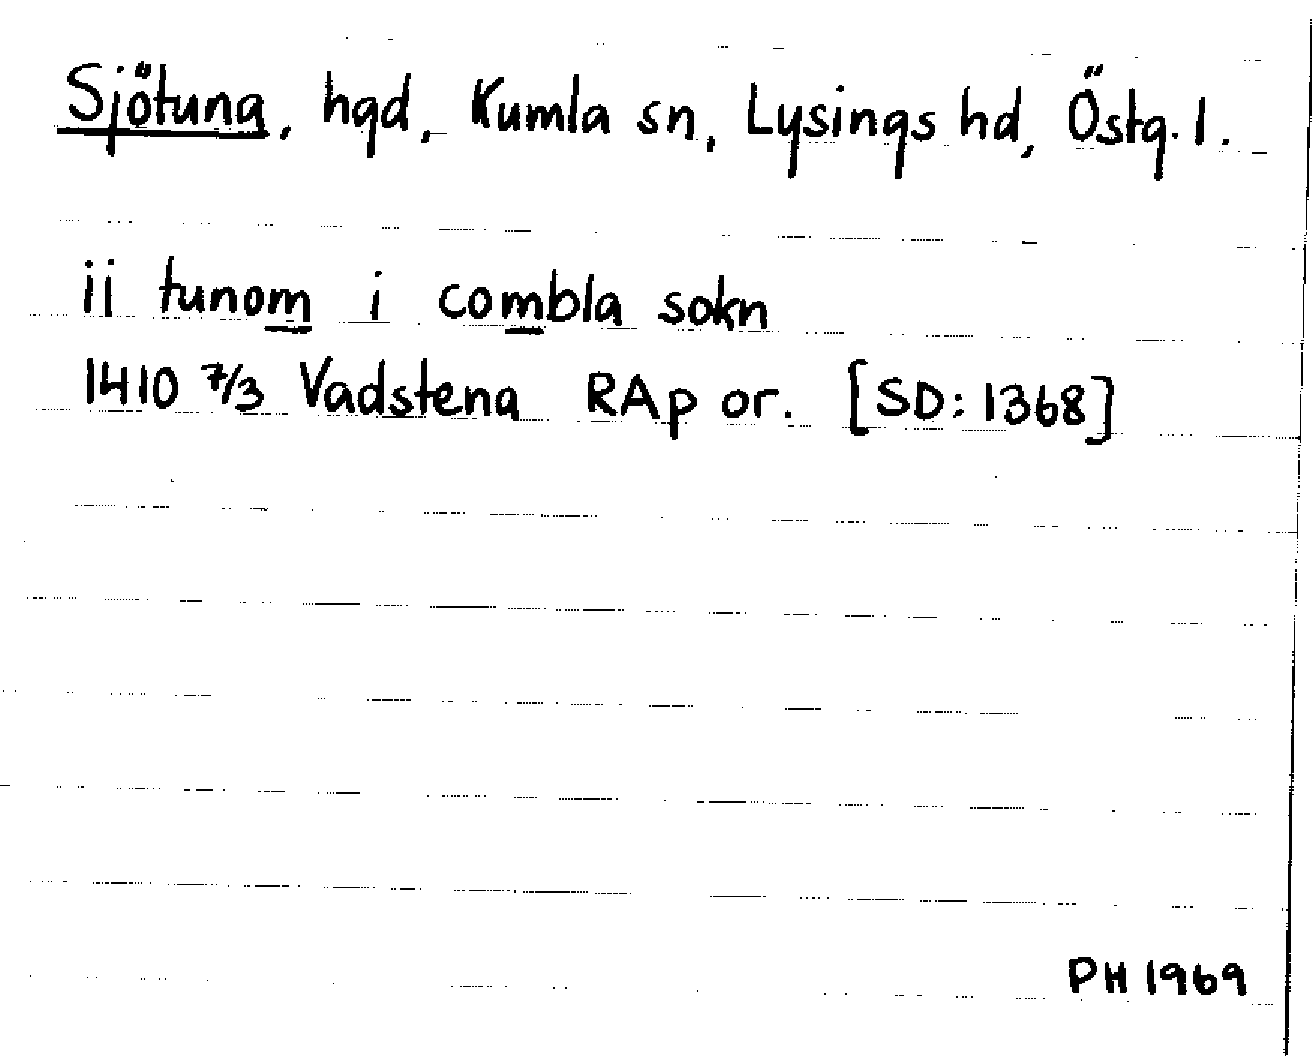 Sjötuna, hgd, Kumla sn, Lysings hd, Östg. l.
ii tunom i combla sokn
1410 7/3 Vadstena RAp or. [SD: 1368]
PH 1969